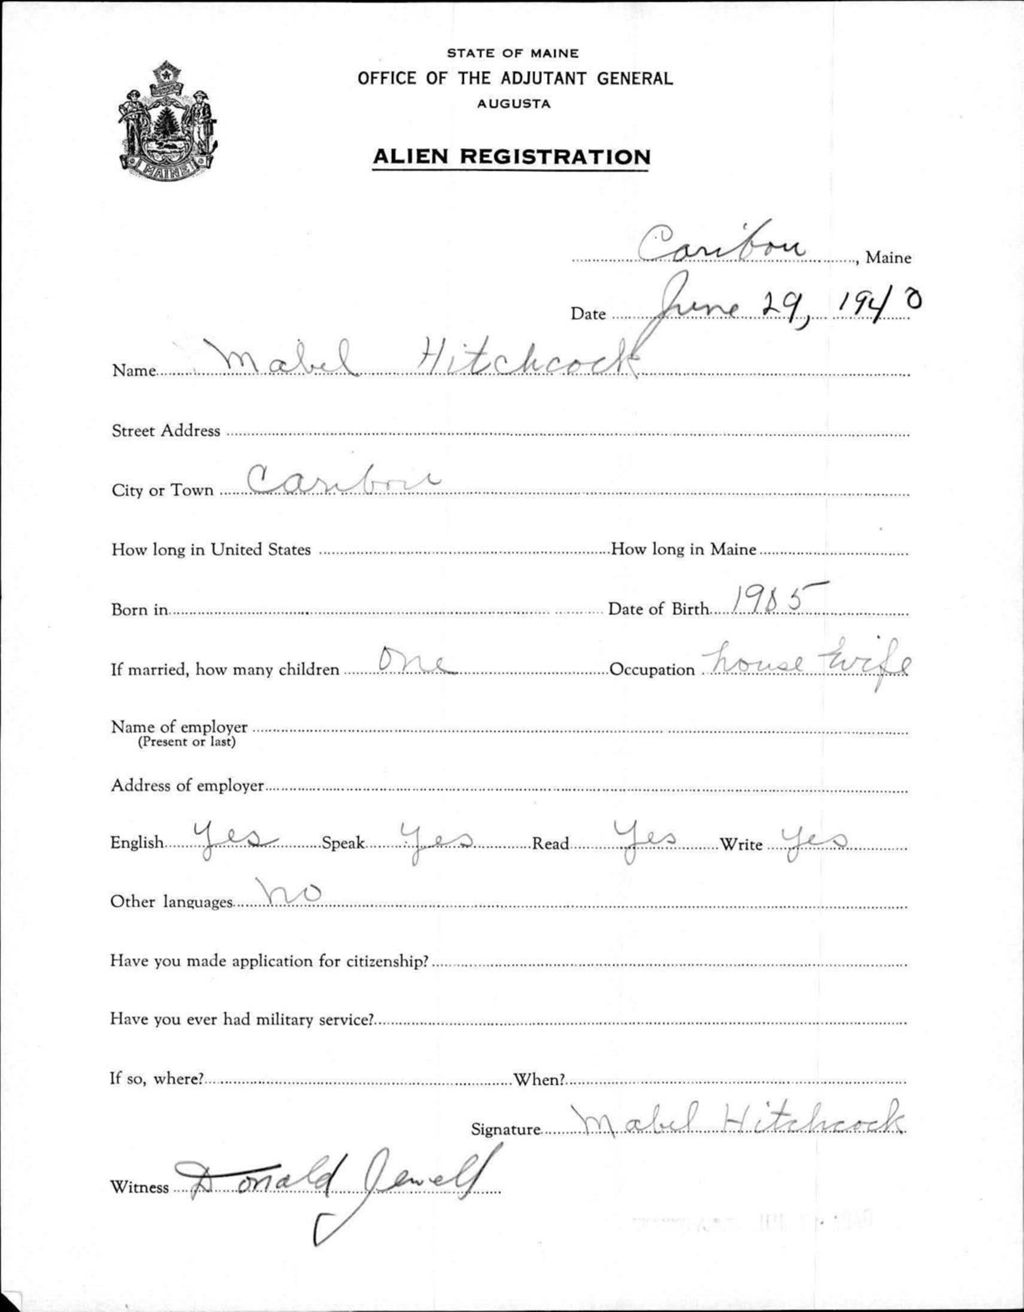 STATE OF MAINE
OFFICE OF THE ADJUTANT GENERAL
AUGUSTA
ALIEN REGISTRATION
MAINE
Caribou, Maine
Date June 29, 1940
Name Mabel Hitchcock
Street Address
City or Town Caribou
How long in United States How long in Maine
Born in Date of Birth 1905
If married, how many children One Occupation house wife
Name of employer
(Present or last)
Address of employer
English Yes Speak Yes Read Yes Write Yes
Other languages No
Have you made application for citizenship?
Have you ever had military service?
If so, where? When?
Signature Mabel Hitchcock
Witness Donald Jewell